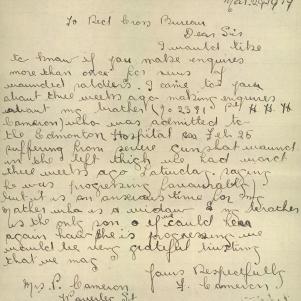 Mar 20 1919
To Red Cross Bureau
Dear Sir
I would like
to know if you make enquires
more than once for news of
wounded soldiers. I came to you
about three weeks ago making enquires
about my brother No 2391 Pt H.H.
Cameron, who was admitted to
the Edmonton Hospital on Feb 26
suffering from severe gun shot wound
in the left thigh we had word
three weeks ago Saturday saying
he was progressing favourably
but it is an anxious time for my
mother who is a widow & my brother
is the only son & if could hear
again how he is progressing we
would be very grateful trusting
that we may
Yours Respectfully
Cameron
Mrs P. Cameron
St